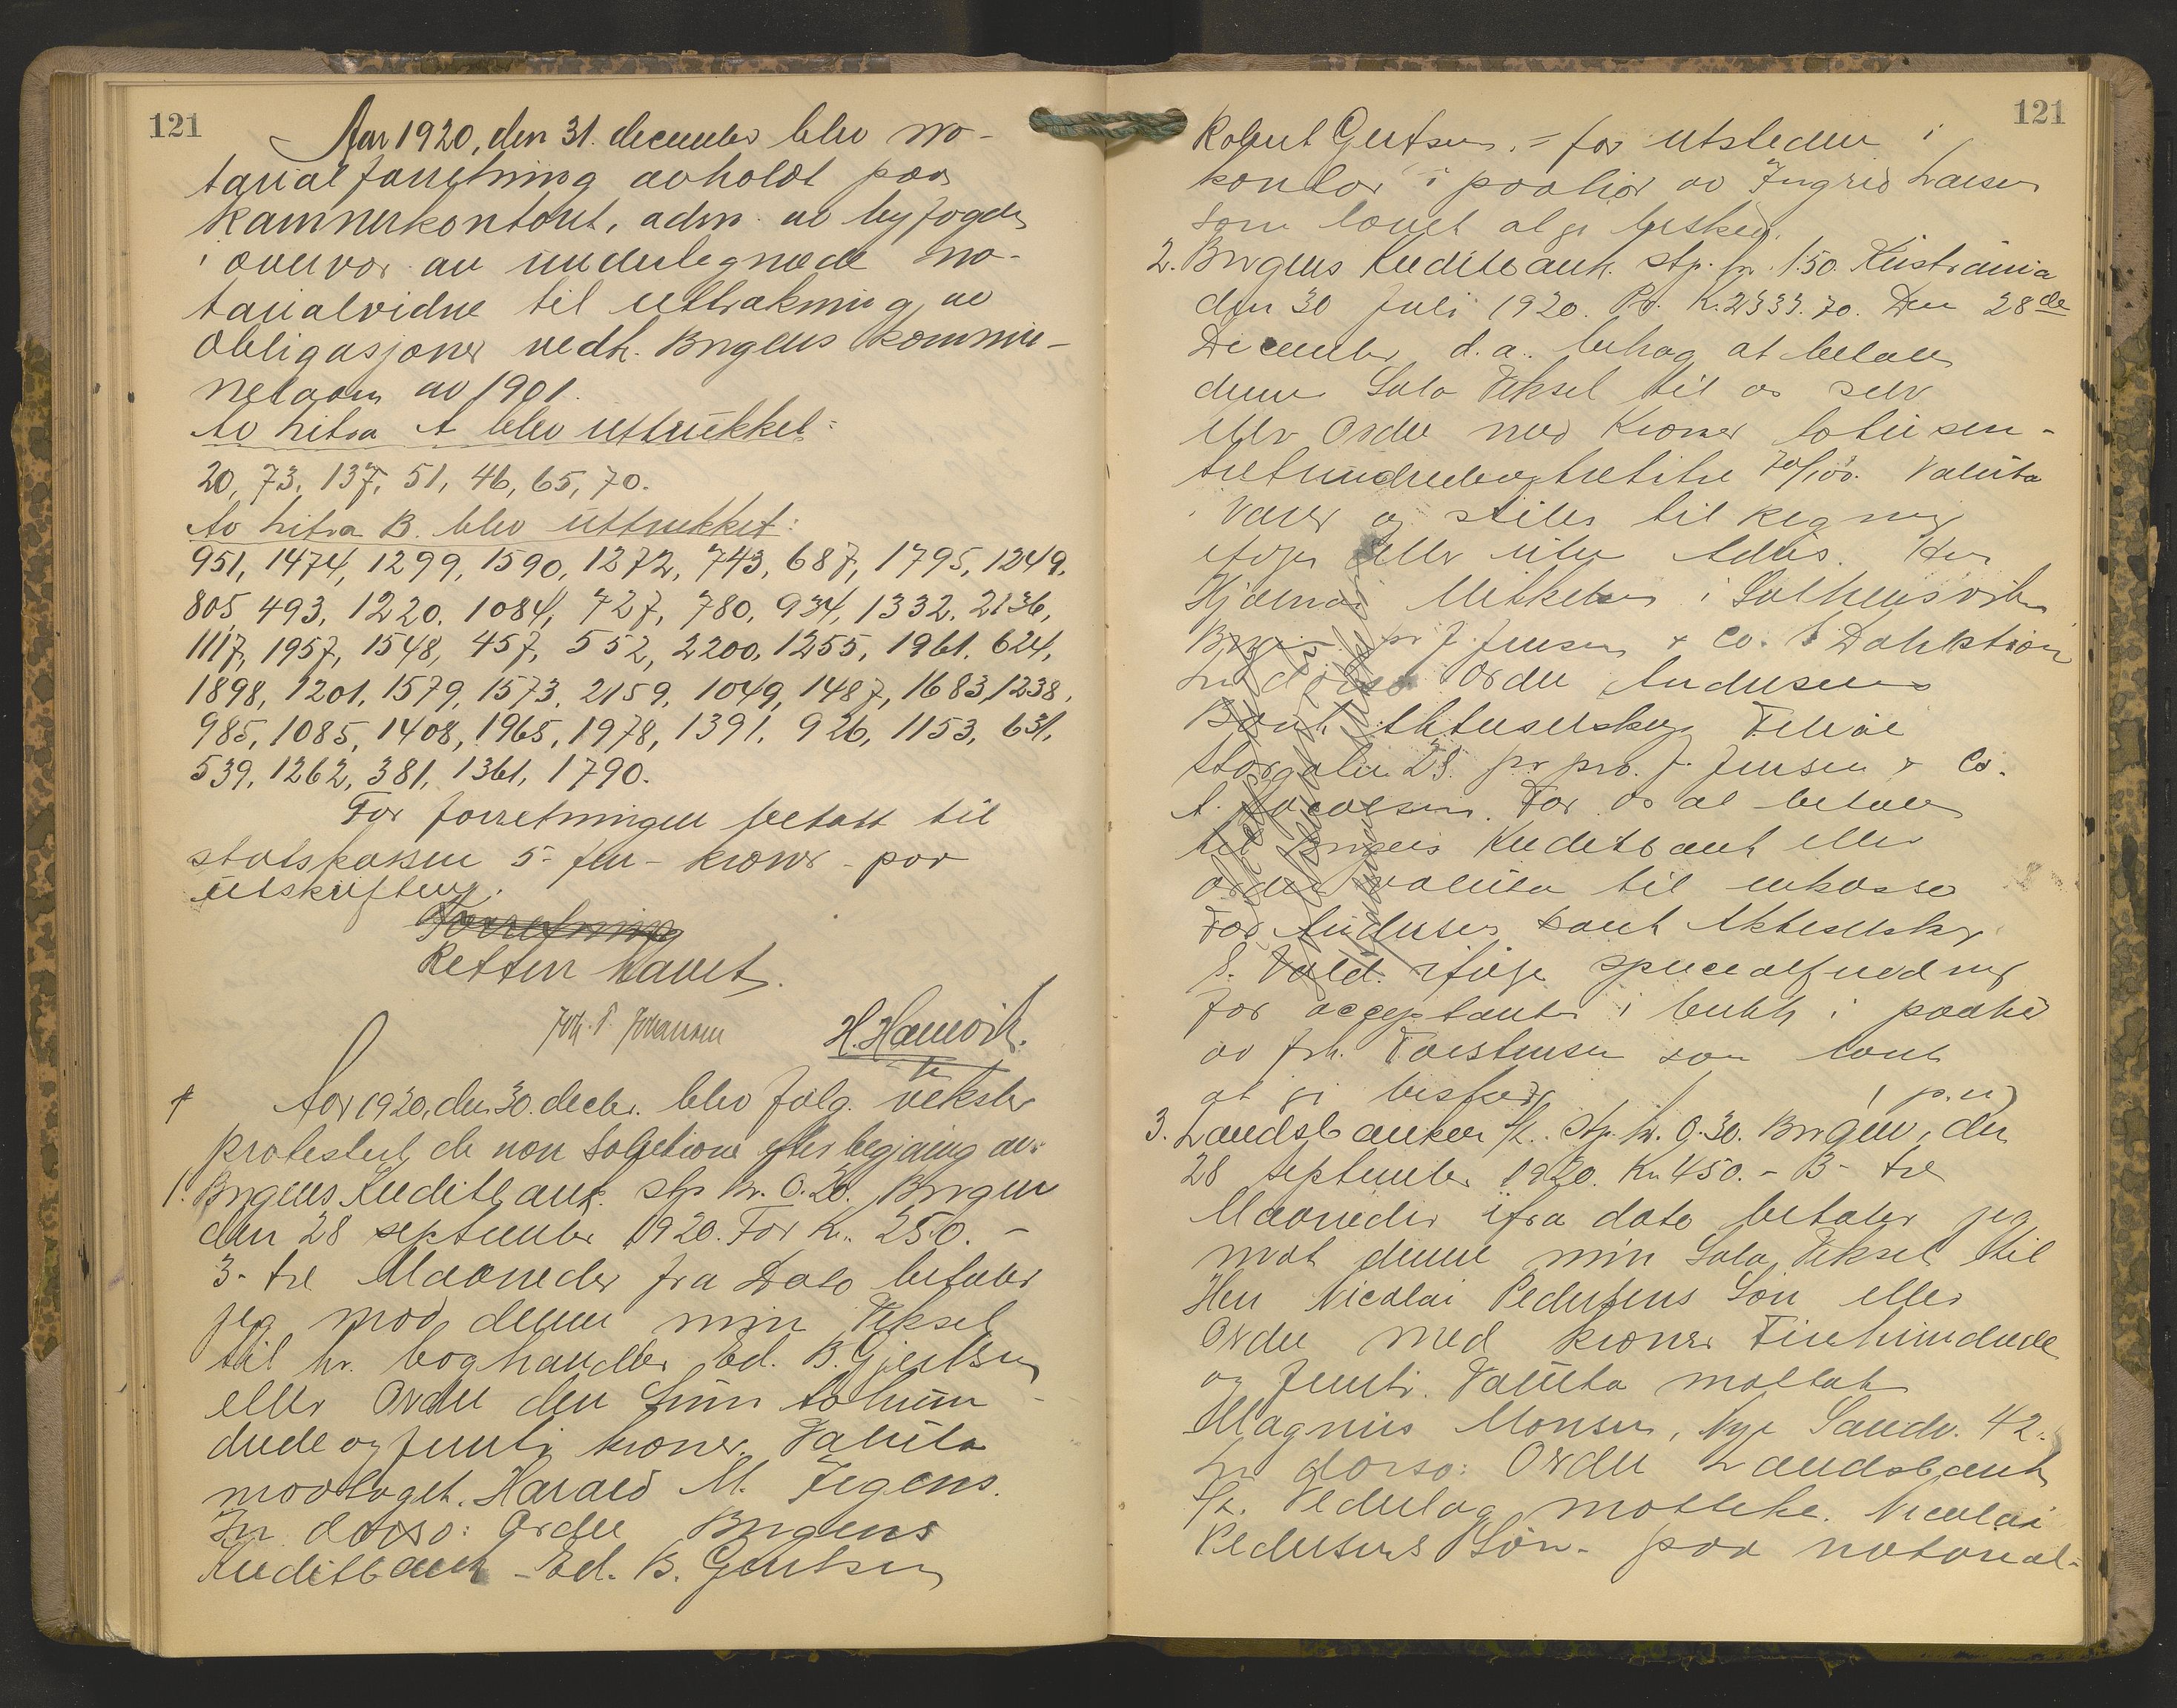 121
Aar 1920, den 31. december blev no-
tarialforretning avholdt paa
kæmnerkontoret, adm. av byfogden
i overvær av undertegnede no-
tarialvidne til uttrækning av
obligasjoner vedk. Bergens kommu-
nelaan av 1901.
Av Litra A blev uttrukket:
20, 73, 137, 51, 46, 65, 70.
Av Litra B. blev uttrukket:
951, 1474, 1299, 1590, 1272, 743, 687, 1795, 1249,
805, 493, 1220, 1084, 727, 780, 934, 1332, 2136,
1117, 1957, 1548, 457, 552, 2200, 1255, 1961, 624,
1898, 1201, 1579, 1573, 2159, 1049, 1487, 1683, 1238,
985, 1085, 1408, 1965, 1978, 1391, 926, 1153, 631,
539, 1262, 381, 1361, 1790.
For forretningen betalt til
statskassen 5- fem - kroner - paa
utskriften.
Forretning
Retten hævet.
Joh. P. Johansen H. Hamvik.
Aar 1920, den 30. decbr. blev følg. veksler
protestert de non solutione efter begjæring av:
1. Bergens Kreditbank. stp. kr. 0.20. Bergen
den 28 september 1920. For Kr. 250. -
3- tre Maaneder fra Dato betaler
jeg mod denne min Veksel
til hr. boghandler Ed. B. Gjertsen
eller Ordre den Sum tohun-
drede og femti kroner. Valuta
modtaget. Harald M. Irgens.
In dorso: Ordre Bergens
Kreditbank - Ed. B. Gjertsen
121
Robert Gertsen. = for utstederen i
kontor i paahør av Ingrid Larsen
som lovet at gi beskjed.
2. Bergens Kreditbank. stp. kr. 1.50. Kristiania
den 30 Juli 1920. Pr. Kr. 2333.70. Den 28de
December d.a. behag at betale
denne Sola Veksel til os selv
eller Ordre med Kroner totusen-
trehundredeogtretitre 70/100. Valuta
i Varer og stilles til regning
ifølge eller uten Advis. Herr
Hjalmar Mikkelsen i Solheimsviken
Bergen pr J. Jensen & Co.
In dorso Ordre Andresens
Bank Aktieselskap Filial
Storgaten 28. pr pro. J. Jensen & Co.
A. Jacobsen. For os at betale
til Bergens Kreditbank eller
ordre valuta til inkasso
For Andresens Bank Aktieselskap
ifølge
for acceptanten i butik i paahør
av frk. Torstensen som lovet
at gi beskjed.
3. Landsbanken A/S. Stp. kr. 0.30. Bergen, den
28 september 1920. Kr. 450. - 3- tre
Maaneder ifra dato betaler jeg
mot denne min Sola Veksel til
Herr Nicolai Pedersens Søn eller
Ordre med kroner Firehundrede
og femti. Valuta mottat
Magnus Monsen, Nye Sandv. 42.
In dorso: Ordre Landsbank
A/S. Vederlag mottat. Nicolai
Pedersens Søn. - paa notarial-